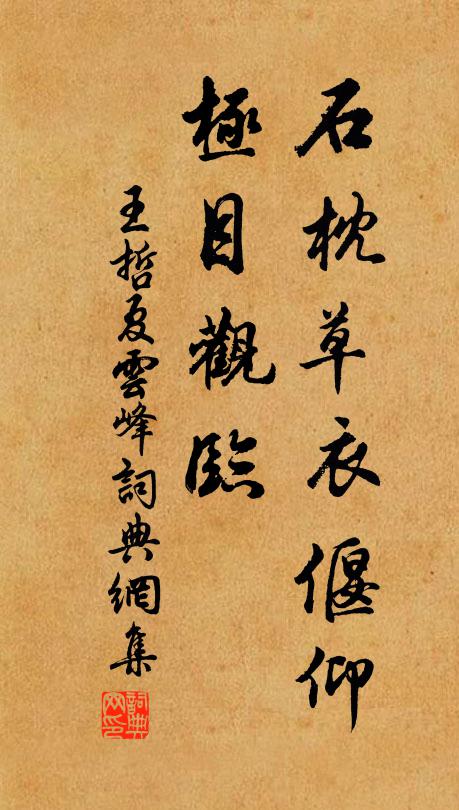 石枕草衣偃仰
極目觀臨
王哲夏雲峰詞典網集
詞典网印